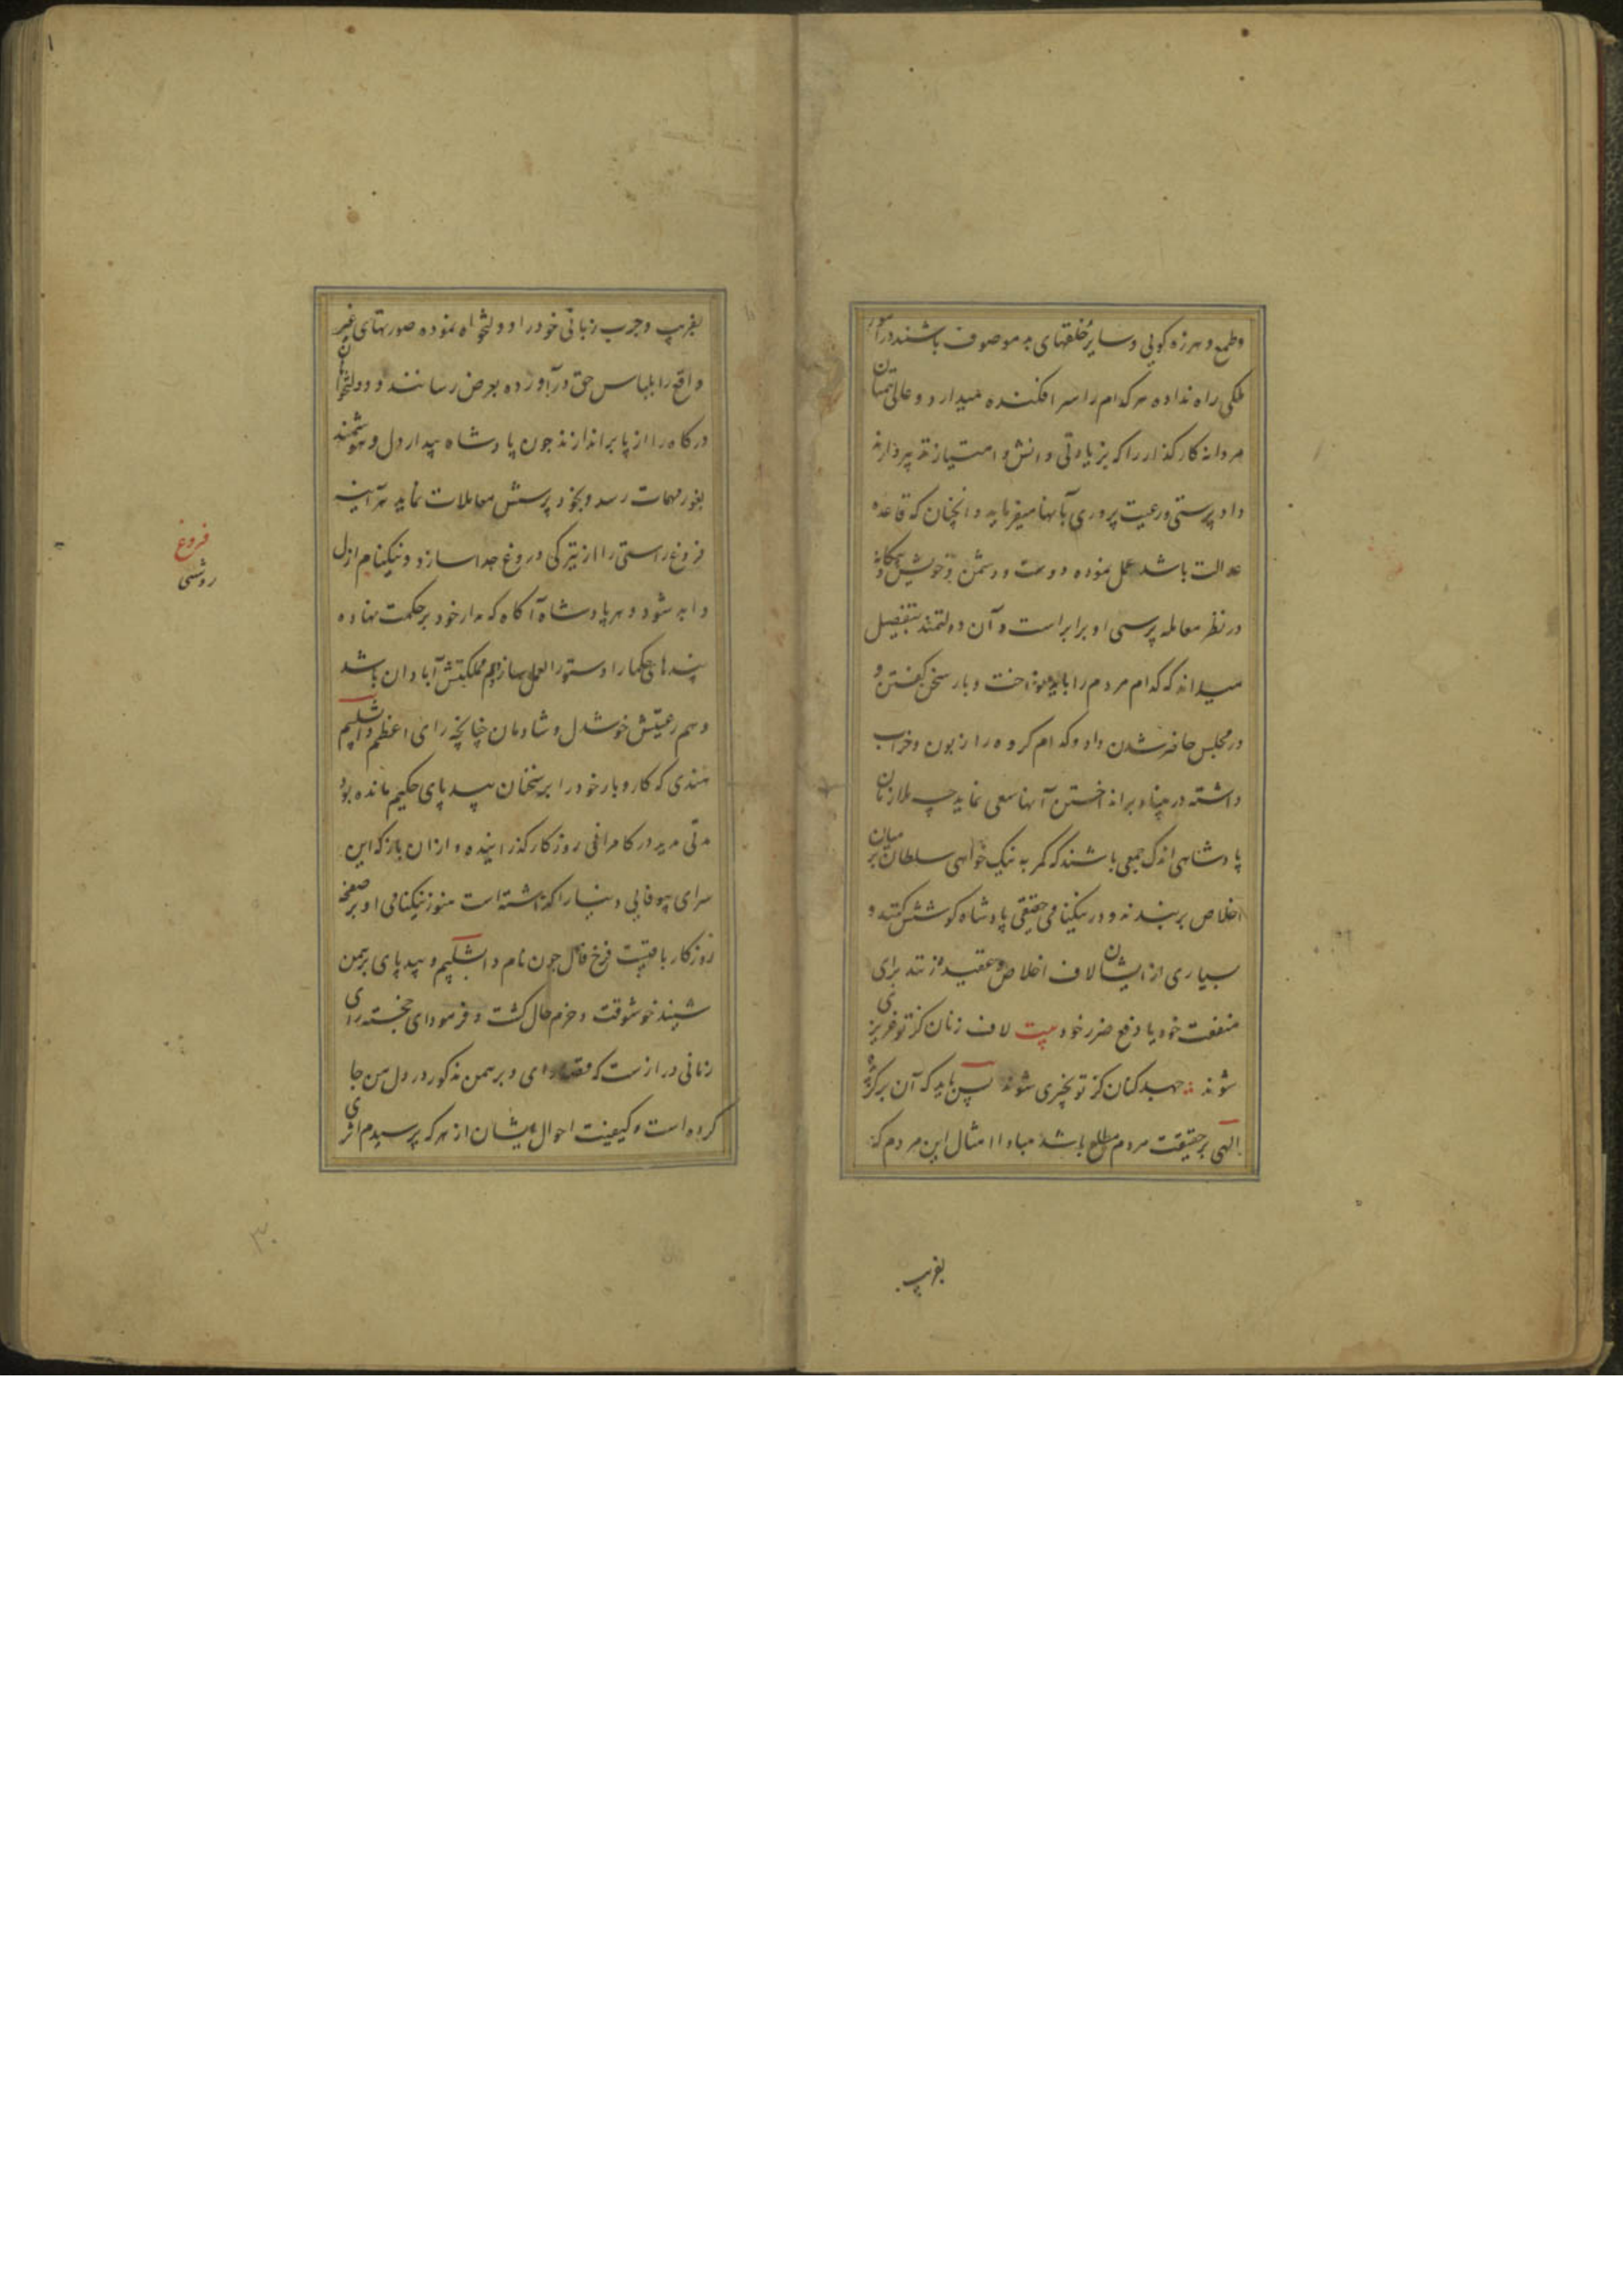 وطمع و هرزه کویی و سایر خلقهای بد موصوف باشند در امور
ملکی راه نداده هر کدام را سرافکنده میدارد و عالی همتان
مردانه کارگذار را که بزیادتی دانش و امتیاز تدبیر دارند
داد پرستی و رعیت پروری بآنها میفرماید و انچنان که قاعده
عدالت باشد عمل نموده دوست و دشمن و خویش و بیکانه
در نظر معامله پرسی او برابر است و آن دولتمند بتفصیل
میداند که کدام مردم را باید نواخت و بار سخن کفتن و
در مجلس حاضر شدن داد و کدام کروه را زبون و خراب
داشته در بر انداختن آنها سعی نماید چه ملازمان
پادشاهی اندک جمعی باشند که کمر به نیک خواهی سلطان بر میان
اخلاص بربندند و در نیکنامی حقیقی پادشاه کوشش کنند و
بسیاری از ایشان لاف اخلاص و عقیده زنند برای
منفعت خود یا دفع ضرر خود بیت لاف زنان کز تو عزیزی
شوند جهد کنان کز تو بچیزی شوند پس باید که آن برکزیده
الهی بر حقیقت مردم مطلع باشد مبادا امثال این مردم که
بفریب
بفریب و چرب زبانی خود را دولتخواه نموده صورتهای غیر
واقع را بلباس حق درآورده بعرض رسانند و دولتخواهان
درکاه را از پا براندازند چون پادشاه بیدار دل و هوشمند
بغور مهمات رسد و بخود پرسش معاملات نماید هرآینه
فروغ راستی را از تیرکی دروغ جدا سازد و نیکنام ازل
و ابد شود و هر پادشاه آکاه که مدار خود بر حکمت نهاده
پندهای حکما را دستور العمل سازد هم مملکتش آبادان باشد
و هم رعیتش خوشدل و شادمان چنانچه رای اعظم دابشلیم
هندی که کاروبار خود را بر سخنان بیدپای حکیم مانده بود
مدتی مدید در کامرانی روزکار کذرانیده و ازان باز که این
سرای بیوفایی دنیا را کذاشته است هنوز نیکنامی او بر صفحه
روزکار باقیست فرخ فال چون نام دابشلیم و بیدپای برهمن
شنید خوشوقت و خرم حال کشت و فرمود ای خجسته رای
زمانی دراز ست که قصه رای و برهمن مذکور در دل من جا
کرده است و کیفیت احوال ایشان از هر که پرسیدم اثری
فروغ
روشنی
۳۰